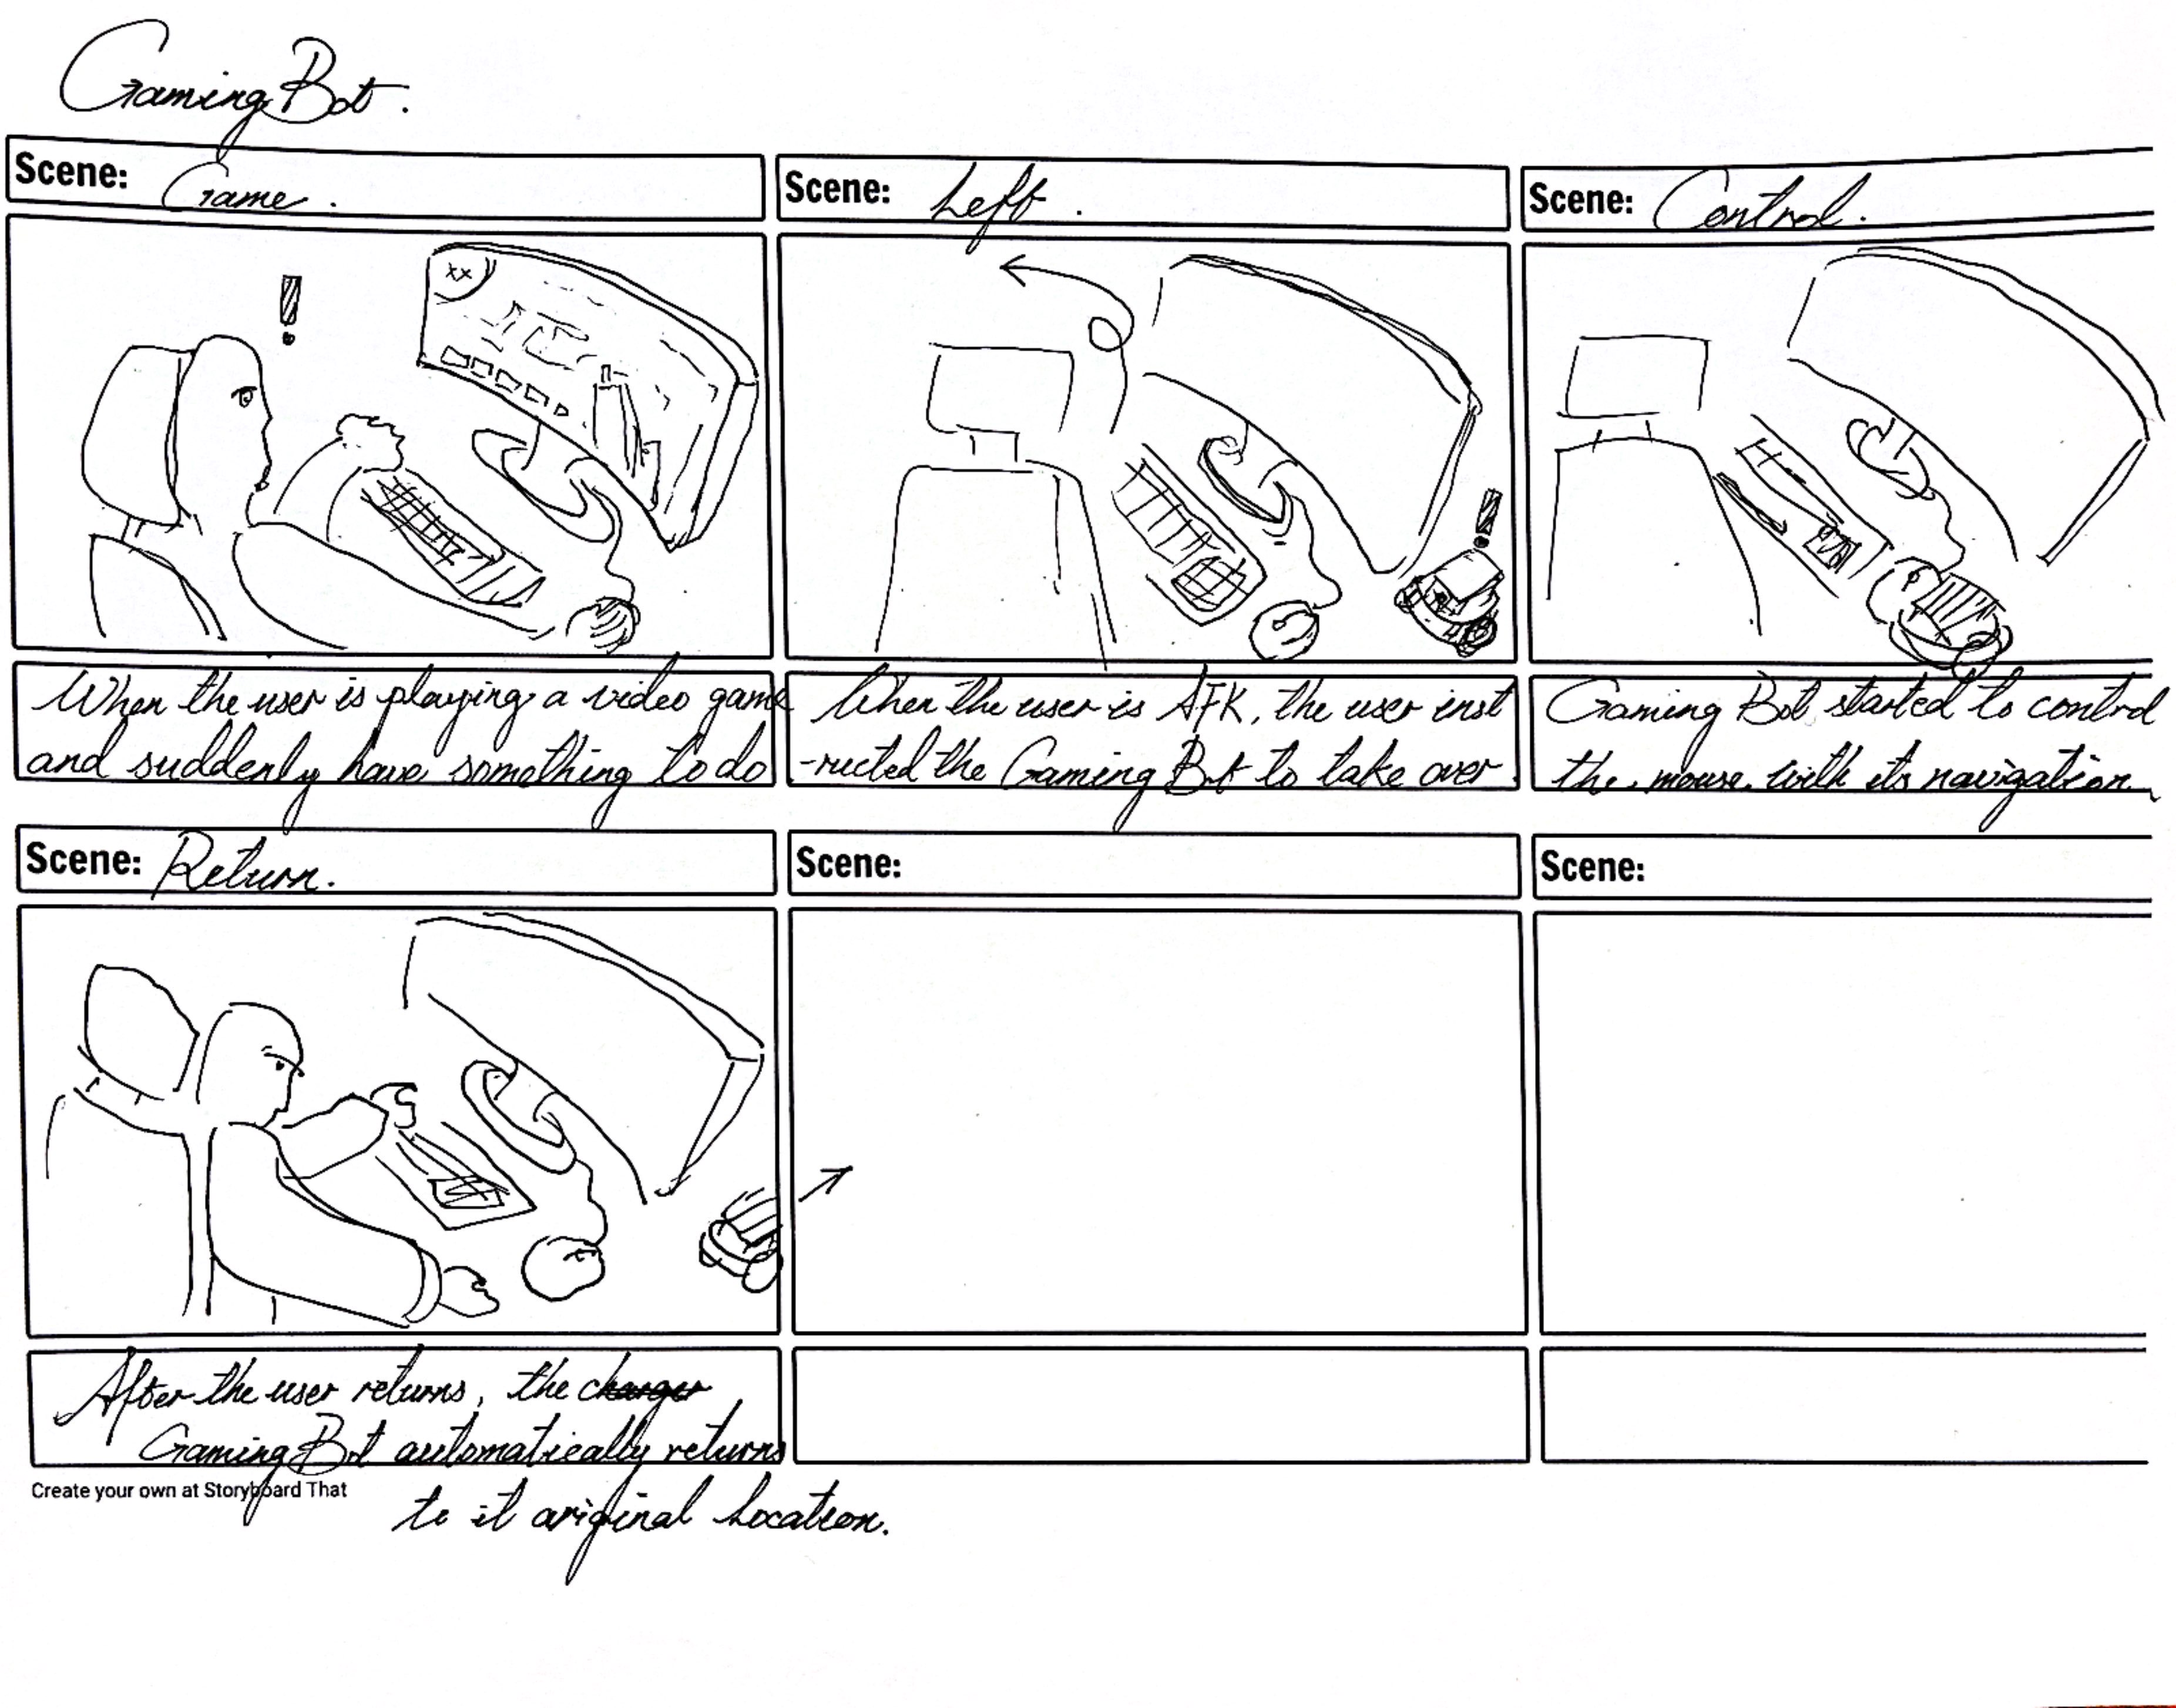 Gaming Bot.
Scene: Game.
Scene: Left.
Scene: Control.
xx
When the user is playing a video game
and suddenly have something to do
When the user is AFK, the user inst
-ructed the Gaming Bot to take over.
Gaming Bot started to control
the mouse with its navigation.
Scene: Return.
Scene:
Scene:
After the user returns, the charger
Gaming Bot automatically returns
to it original location.
Create your own at Storyboard That